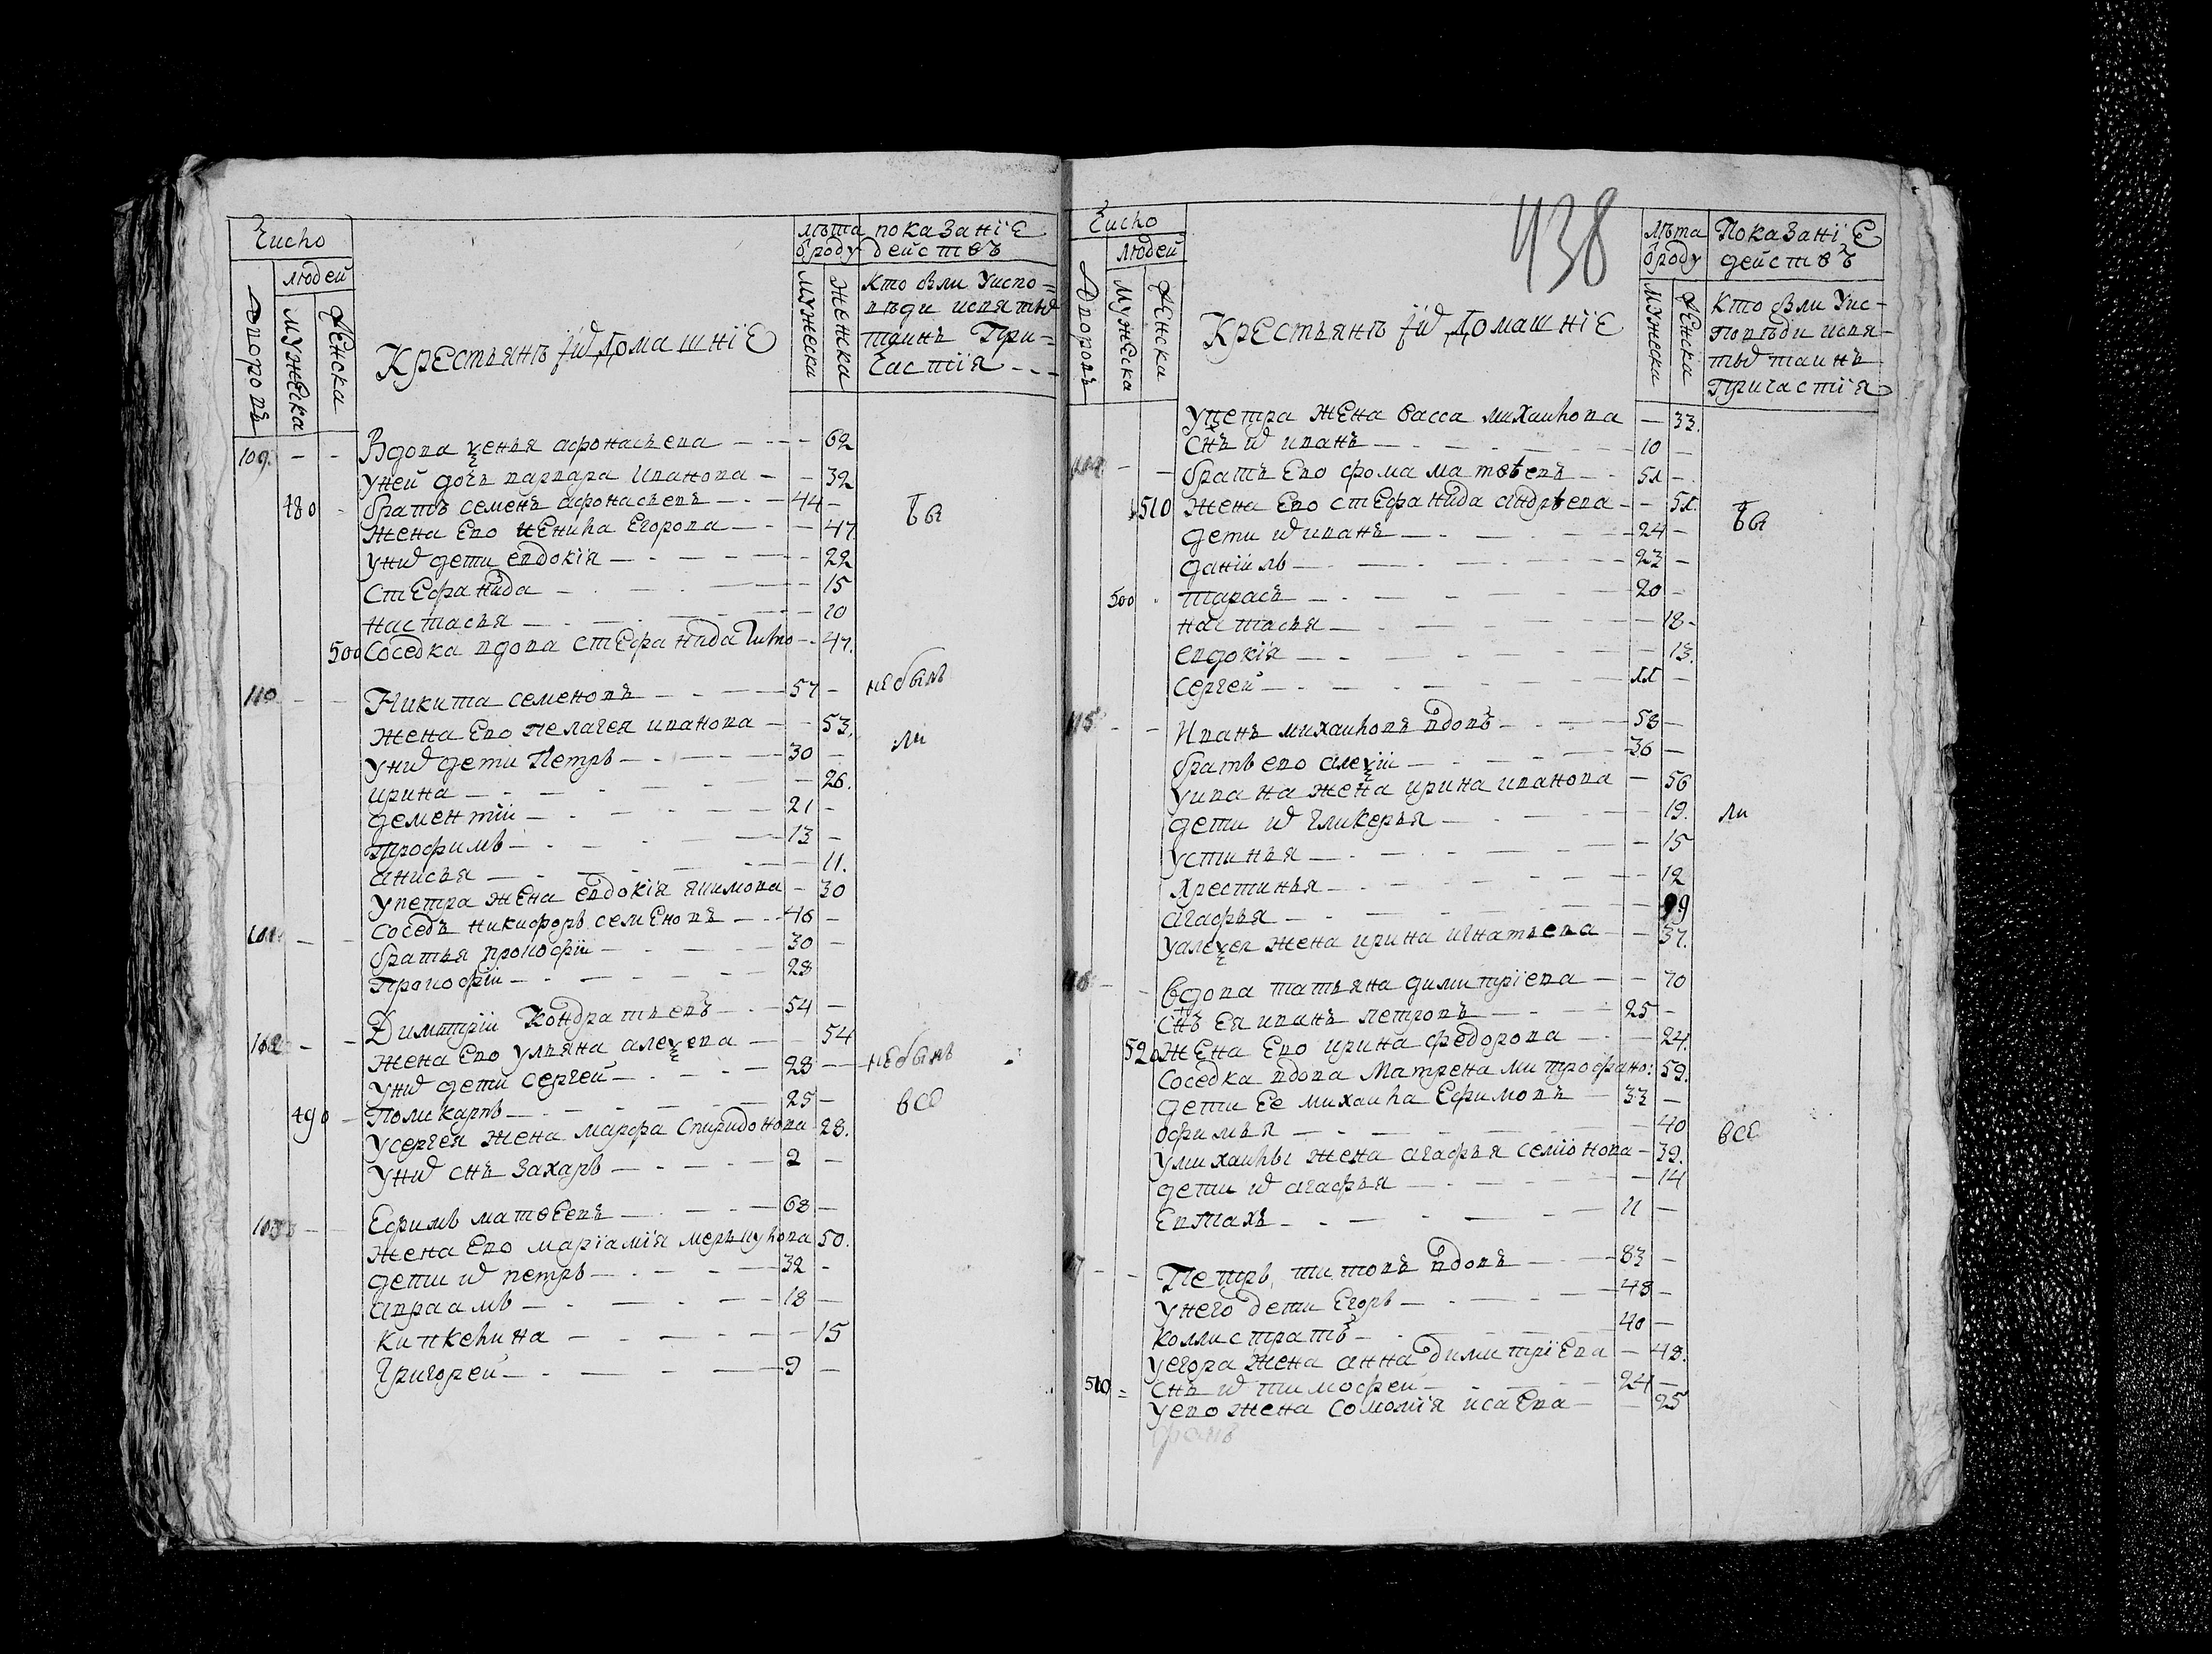 Число
людей
Дворовъ
мужеска
женска
Крестьянъ їихъ домашнїе
лѣта ѿроду
мужеска
женска
показанїе действъ
кто были Уиспо=
вѣди исвятыхъ
таинъ При=
частїя
109. Вдова ѯенья афонасьева 62
Уней дочь варвара Иванова 32
480 братъ семенъ афонасьевъ 44
Жена Ево Егорова 47
Уних дети евдокїя 22
Стефанида 15
настасья 10
500 Соседка вдова Стефанида 47.
бы
110 Никита семеновъ 57 небылъ
Жена Ево пелагея иванова 53.
ли
Уних дети Петръ 30
ирина 26.
дементїи 21
трофимъ 13
анисья 11.
Упетра жена евдокїя якимова 30
Соседъ никифоръ семеновъ 46
братья прокофїи 30
прокофїи 28
Димитрїи Кондратьевъ 54
Жена Ево ульяна алеѯева 54
Уних дети Сергей 28 небылъ
490 Поликарпъ 25 все
Усергея жена марфа спиридонова 28.
Уних снъ Захаръ 2
Ефимъ матвеевъ 68
Жена Ево марїамїя меркулова 50.
дети их петръ 32
авраамъ 18
15
Григорей 9
438
Число
людей
Дворовъ
мужеска
женска
Крестьянъ їихъ домашнїе
Лѣта ѿроду
мужеска
женска
Показанїе действъ
Кто были Уис-
повѣди исвя-
тых таинъ
Причастїя
Упетра жена Васса михаилова 33.
Снъ их иванъ 10
братъ Ево фома матвѣевъ 51
510 Жена Ево стефанида андрѣева 51.
бы
дети их иванъ 24
данїилъ 22
500 тарасъ 20
настасья 18
евдокїя 13.
сергей 11
115 Иванъ михаиловъ вдовъ 58
братъ ево алеѯїи 36
Уивана жена ирина иванова 56
дети их гликерья 19. ли
устинья 15
хрестинья 12
агафья 9
Уалеѯея жена ирина игнатьева 37.
Вдова татьяна димитрїева 70
снъ ея иванъ петровъ 25
520 Жена Ево ирина федорова 24.
Соседка вдова Матрена митрофано: 59.
дети Ее михаила Ефимовъ 33
офимья 40
все
Умихаилы жена агафья семїонова 39.
дети их агафья 14
Евтахъ 11
Петръ титовъ вдовъ 83
Унего дети Егоръ 48
Коллистратъ 40
Уегора жена анна димитрїева 48.
510 снъ их тимофеи 24
Уево жена Соломїя исаева 25